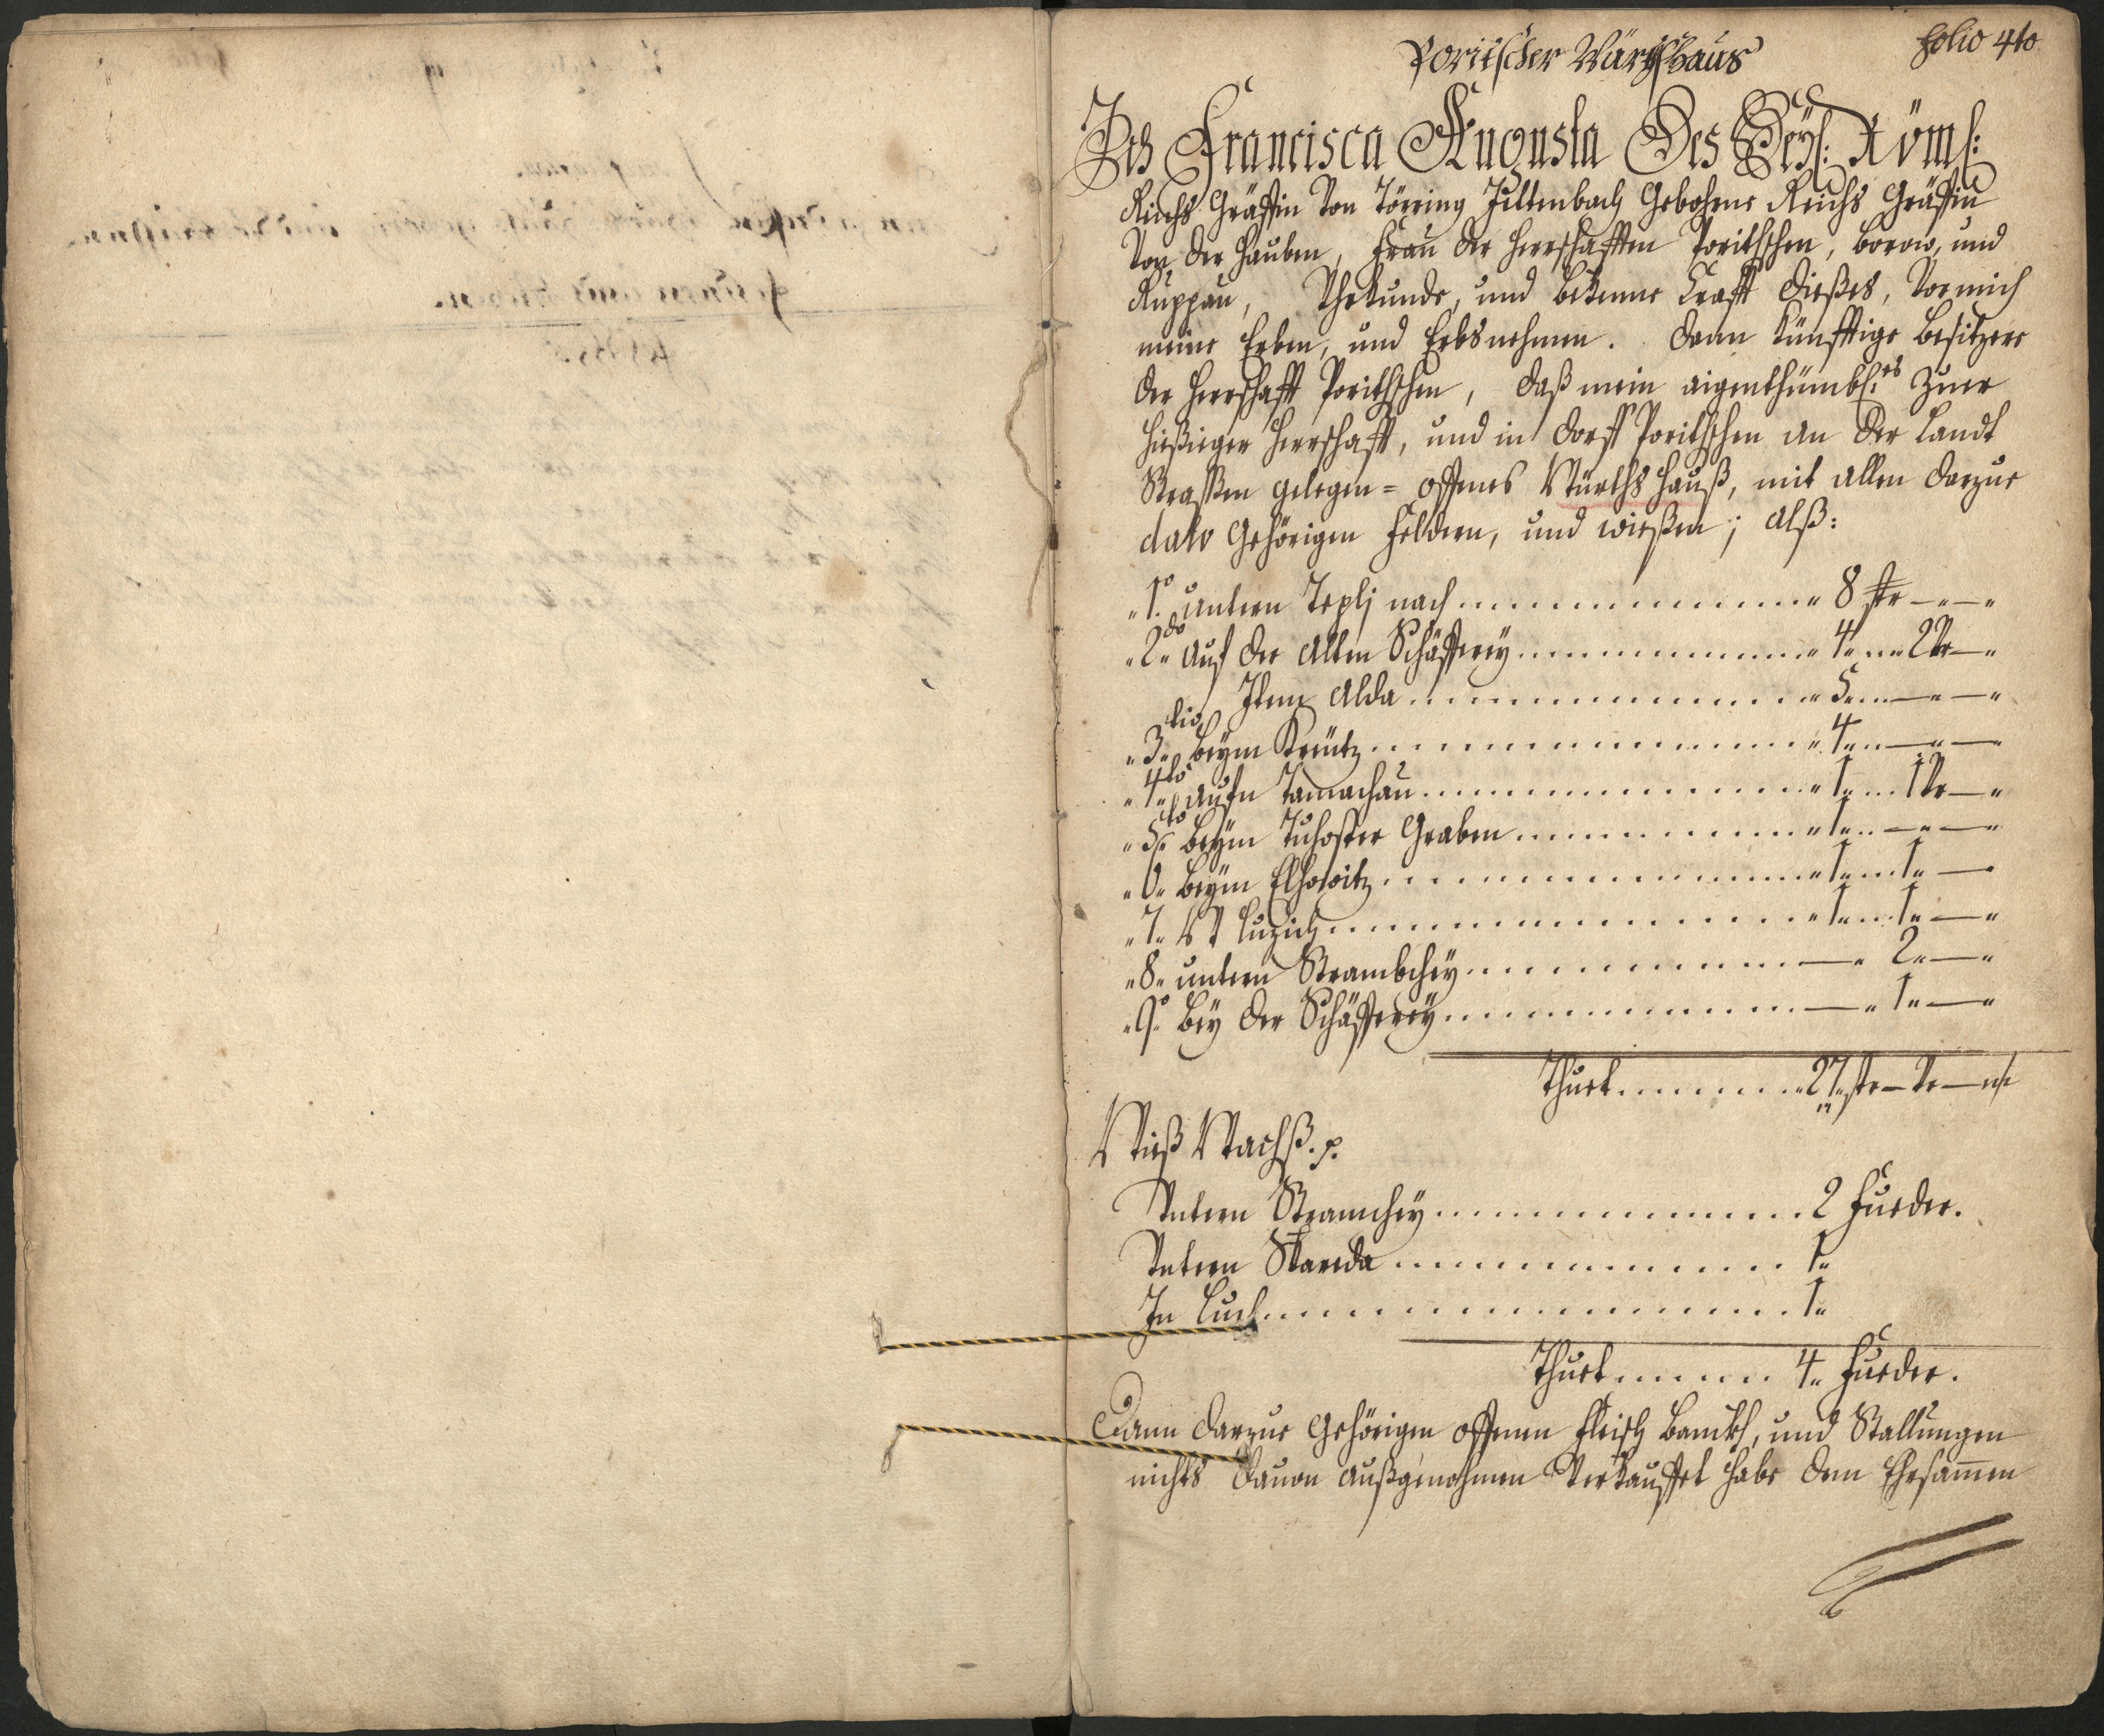 Poriischer Würthshaus
Folio 410
Ich Francisca Augusta Des Heyl: Röm:
Reichs Gräffin Von Törring Jettenbach Gebohrne Reichs Gräffin
Von der Hauben, Frau der Herrschafften Poritschen, Borow, und
Ruppau, Uhrkunde, und bekenne Crafft dießes, Vor mich
meine Erben, und Erbsnehmen. dann künfftige Besitzere
der Herrschafft Poritschen, daß mein aigenthümbl:es zuer
hießieger Herrschafft, und in dorff Poritschen an der Landt
Strassen gelegen= offenes Würths Hauß, mit allen darzue
dato Gehörigen Feldern, und wießen; Alß:
1o untern Teplj nach 8 str — —
2do Auf der Alten Schäfferey 4 2 Vr —
Item Alda 5 — —
3tio beym Kreutz 4 — —
4to aufn Tamachau 1 1 Vr —
5to beym Tuhoster Graben 1 — —
6 beym Elhowitz 1 1 —
7 W Luzich 1 1 —
8 untern Strambchey — 2 —
9o bey der Schäfferey — 1 —
Thuet 27 str — Vr —
Wieß Wachß. p.
Untern Stramchey 2 Fueder.
Untern Skareda 1
In Luch 1
Thuet 4 Fueder.
Dann darzue Gehörigen offenen Fleisch Banckh, und Stallungen
nichts dauon außgenohmen Verkauffet habe dem Ehrsamen